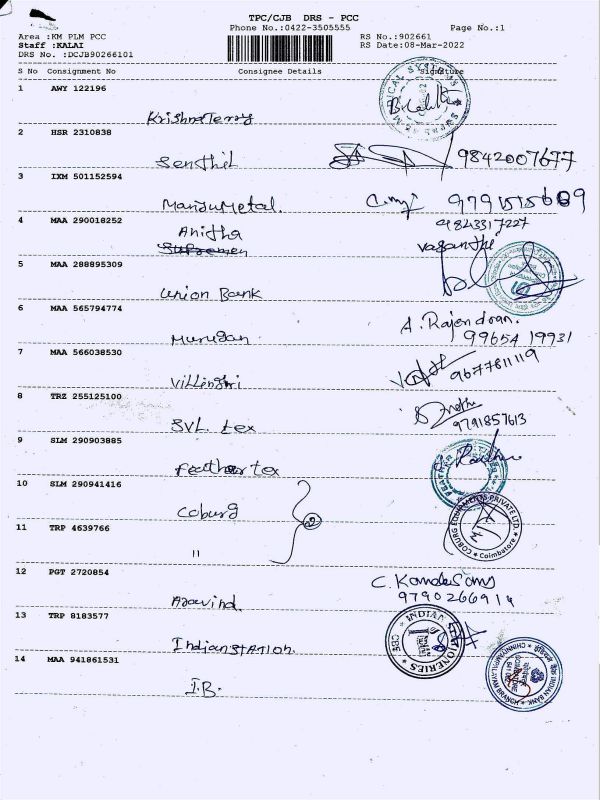 TPC/CJB DRS - PCC
Phone No.:0422-3505555 Page No.:1
Area :KM PLM PCC RS No.:902661
Staff :KALAI RS Date:08-Mar-2022
DRS No. :DCJB90266101
S No Consignment No Consignee Details Signature
1 AWY 122196
Krishna Terry
2 HSR 2310838
Senthil 9842007677
3 IXM 501152594
Manju Metal.
4 MAA 290018252 9843317227
Anitha Vasanthi
5 MAA 288895309
Union Bank
6 MAA 565794774 A. Rajendran.
Murugan 99654 19931
7 MAA 566038530
9677811119
8 TRZ 255125100
SVL. tex 9791857613
9 SLM 290903885
Feather tex
10 SLM 290941416
Coburg 2
COBURG EQUIPMENTS PRIVATE LTD.
Coimbatore
11 TRP 4639766
"
12 PGT 2720854
Aravind. 9790266914
13 TRP 8183577
Indian STATION.
INDIAN STATIONERIES
CBE
14 MAA 941861531
I.B.
इंडियन बैंक INDIAN BANK